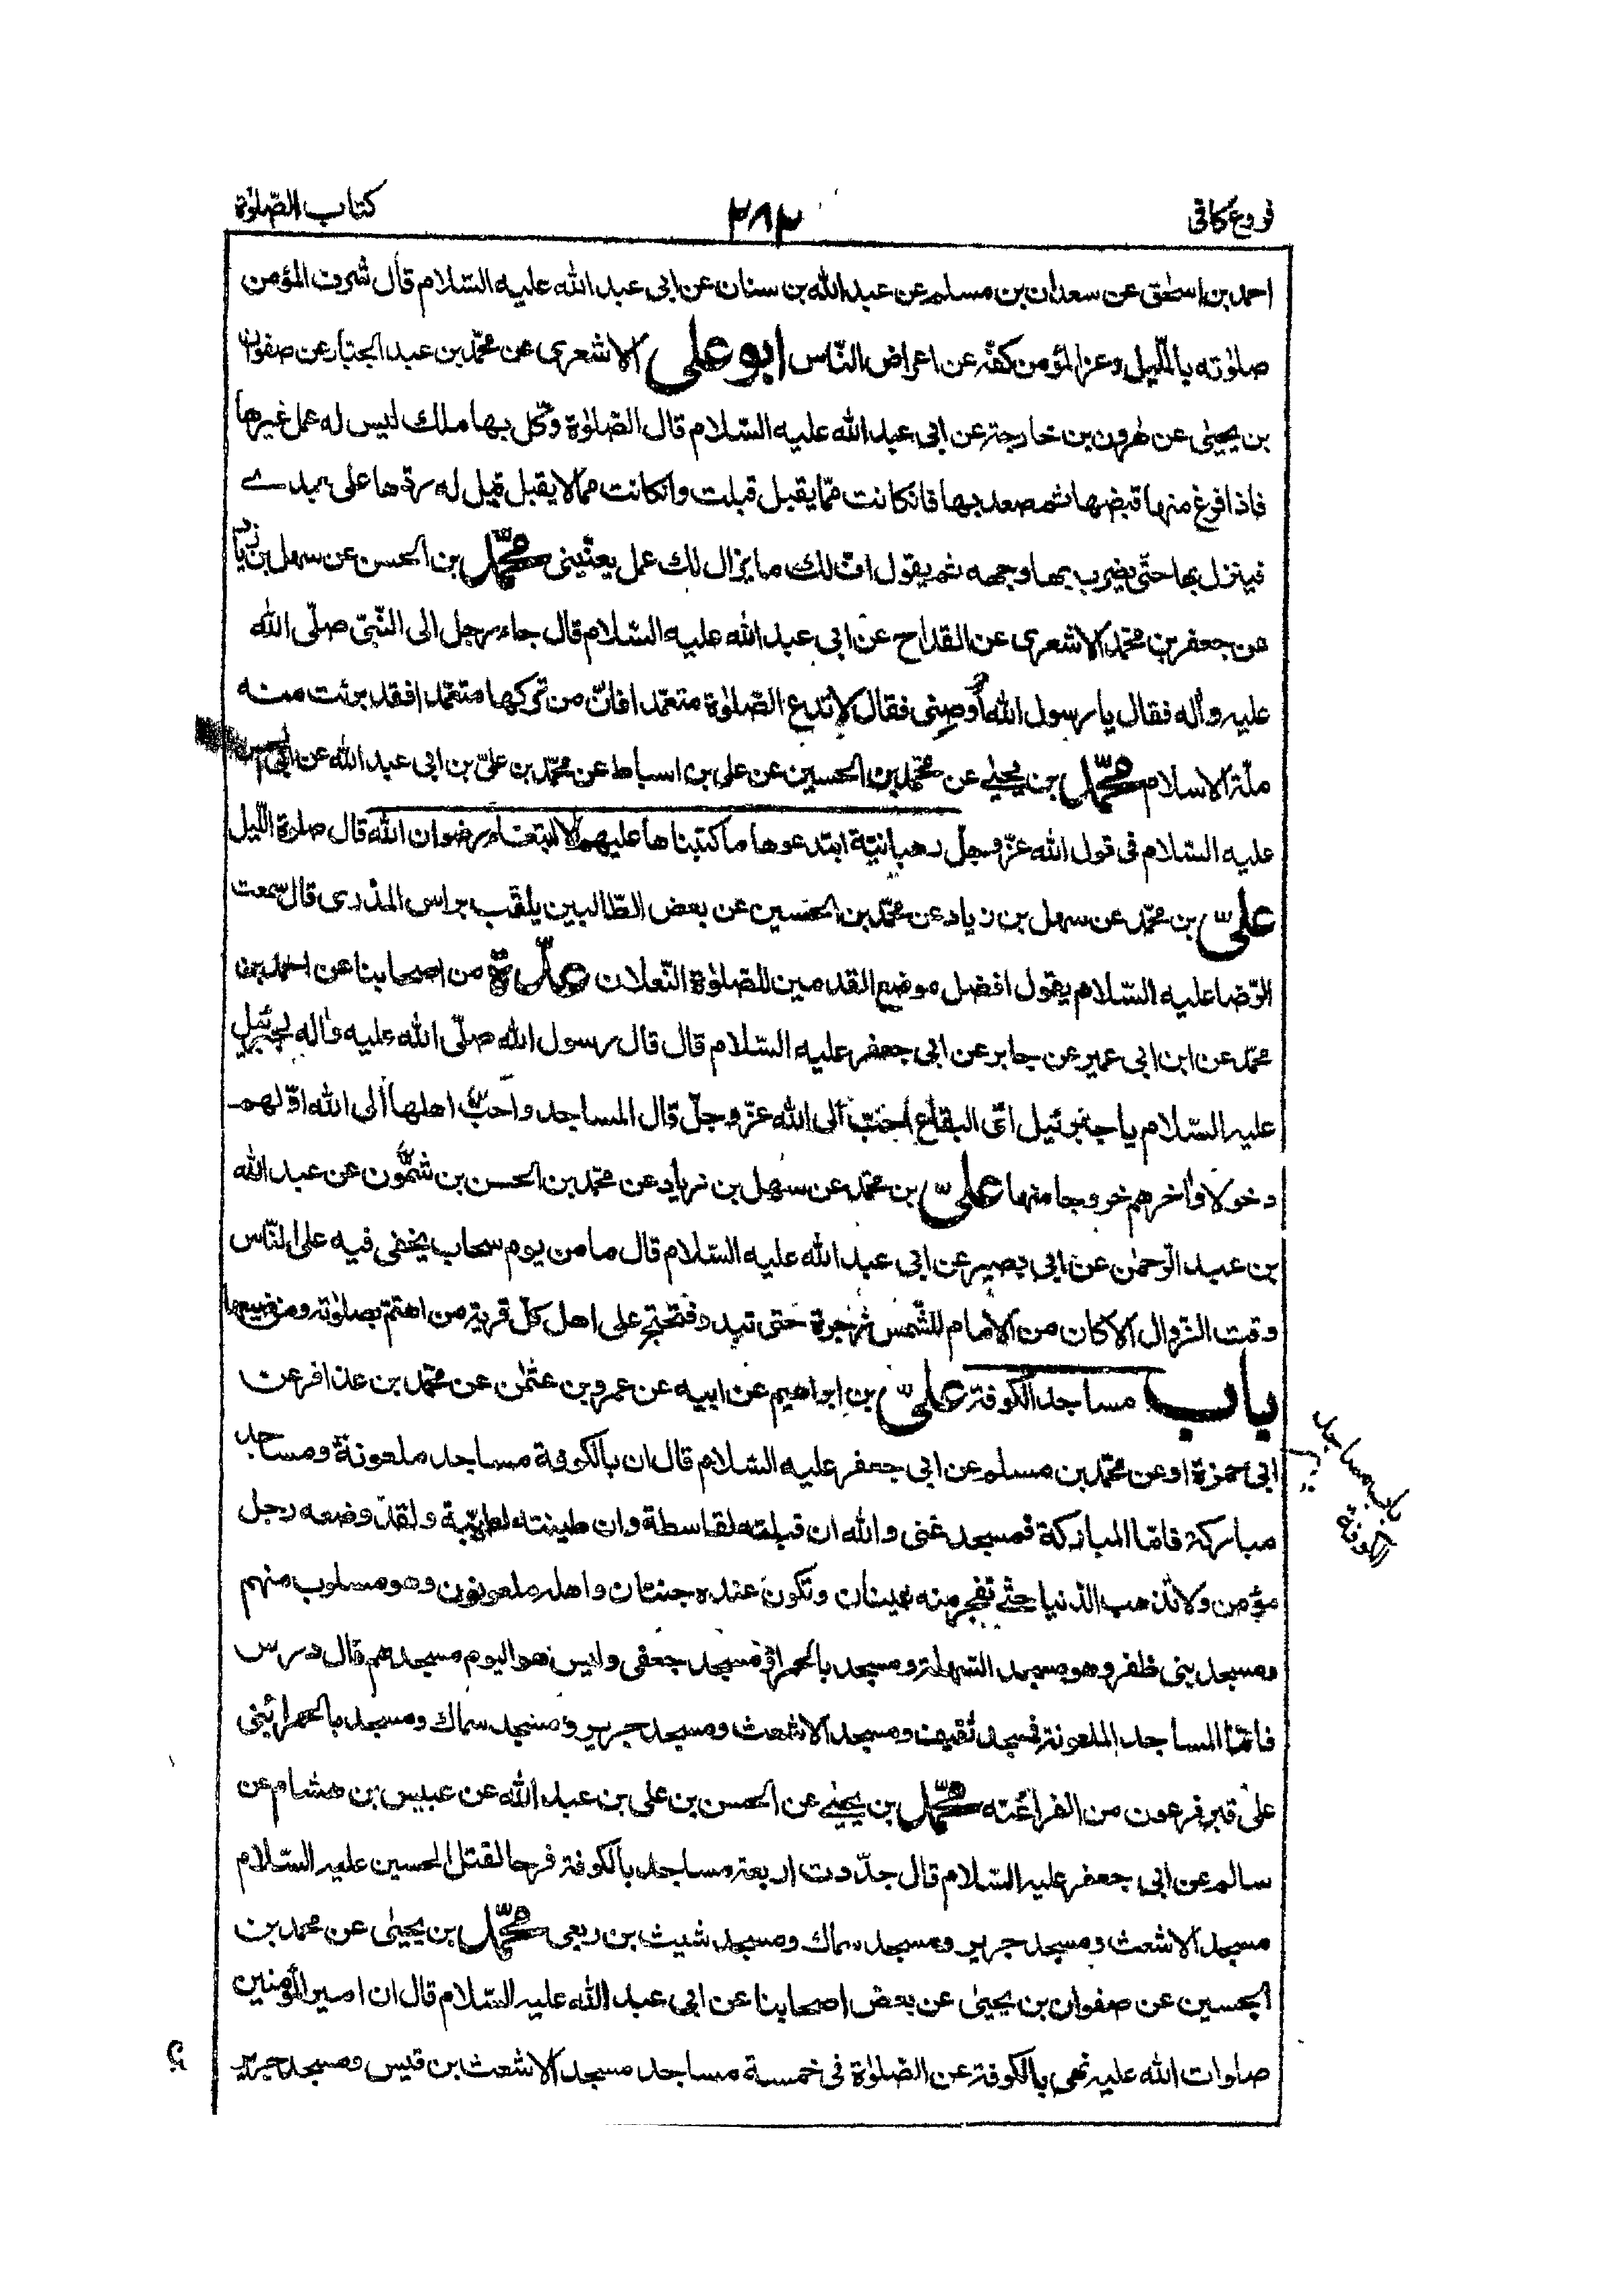 فروع كافى ٢٨٣ كتاب الصّلوٰة
احمد بن اسحٰق عن سعدان بن مسلم عن عبد الله بن سنان عن ابى عبد الله عليه السّلام قال شرف المؤمن
صلوٰته بالّليل وعز المؤمن كفّه عن اعراض النّاس ابو على الاشعرى عن محمّد بن عبد الجبّار عن صفوان
بن يحيىٰ عن هٰرون بن خارجة عن ابى عبد الله عليه السّلام قال الصّلوٰة وكّل بها ملك ليس له عمل غيرها
فاذا فرغ منها قبضها ثم صعد بها فانكانت ممّا يقبل قبلت وانكانت ممّا لا يقبل قيل له ردّها على عبدى
فينزل بها حتّى يضرب بها وجهه ثم يقول افّ لك ما يزال لك عمل يعنّينى محمّد بن الحسن عن سهل بن زياد
عن جعفر بن محمّد الاشعرى عن القدّاح عن ابى عبد الله عليه السّلام قال جاء رجل الى النّبىّ صلّى الله
عليه واٰله فقال يا رسول الله اوصنى فقال لا تدع الصّلوٰة متعمّدا فانّ من تركها متعمّدا فقد برئت منه
ملّة الاسلام محمّد بن يحيىٰ عن محمّد بن الحسين عن على بن اسباط عن محمّد بن علىّ بن ابى عبد الله عن ابى الحسن
عليه السّلام فى قول الله عزّ وجلّ رهبانيّة ابتدعوها ما كتبناها عليهم الّا ابتغاء رضوان الله قال صلوة اللّيل
علىّ بن محمّد عن سهل بن زياد عن محمّد بن الحسين عن بعض الطّالبين يلقّب براس المذرى قال سمعت
الرّضا عليه السّلام يقول افضل موضع القدمين للصّلوٰة النّعلان عدّة من اصحابنا عن احمد بن
محمّد عن ابن ابى عمير عن جابر عن ابى جعفر عليه السّلام قال قال رسول الله صلّى الله عليه واٰله لجبرئيل
عليه السّلام يا جبرئيل اىّ البقاع احبّ الى الله عزّ وجلّ قال المساجد واحبّ اهلها الى الله اوّلهم
دخولا واٰخرهم خروجا منها علىّ بن محمّد عن سهل بن زياد عن محمّد بن الحسن بن شمّون عن عبد الله
بن عبد الرّحمٰن عن ابى بصير عن ابى عبد الله عليه السّلام قال ما من يوم سحاب يخفى فيه على النّاس
وقت الزّوال الا كان من الامام للشّمس زجرة حتى تبدو فتحتج على اهل كلّ قرية من اهتمّ بصلوٰته ومن ضيعها
باب مساجد الكوفة علىّ بن ابراهيم عن ابيه عن عمرو بن عثمٰن عن محمّد بن عذافر عن
ابى حمزة او عن محمّد بن مسلم عن ابى جعفر عليه السّلام قال ان بالكوفة مساجد ملعونة ومساجد
مباركة فامّا المباركة فمسجد غنى والله ان قبلته لقاسطة وان طينته لطيّبة ولقد وضعه رجل
مؤمن ولا تذهب الدّنيا حتّى تفجر منه عينان وتكون عنده جنتان واهله ملعونون وهو مسلوب منهم
ومسجد بنى ظفر وهو مسجد السّهلة ومسجد بالحمراء ومسجد جعفى وليس هو اليوم مسجدهم قال درس
فامّا المساجد الملعونة فمسجد ثقيف ومسجد الاشعث ومسجد جرير ومسجد سماك ومسجد بالحمراء بنى
على قبر فرعون من الفراعنه محمّد بن يحيىٰ عن الحسن بن على بن عبد الله عن عبيس بن هشام عن
سالم عن ابى جعفر عليه السّلام قال جدّدت اربعة مساجد بالكوفة فرحا لقتل الحسين عليه السّلام
مسجد الاشعث ومسجد جرير ومسجد سماك ومسجد شبث بن ربعى محمّد بن يحيىٰ عن محمد بن
الحسين عن صفوان بن يحيىٰ عن بعض اصحابنا عن ابى عبد الله عليه السّلام قال ان امير المؤمنين
صلوات الله عليه نهى بالكوفة عن الصّلوٰة فى خمسة مساجد مسجد الاشعث بن قيس ومسجد جرير
باب مساجد
الكوفة